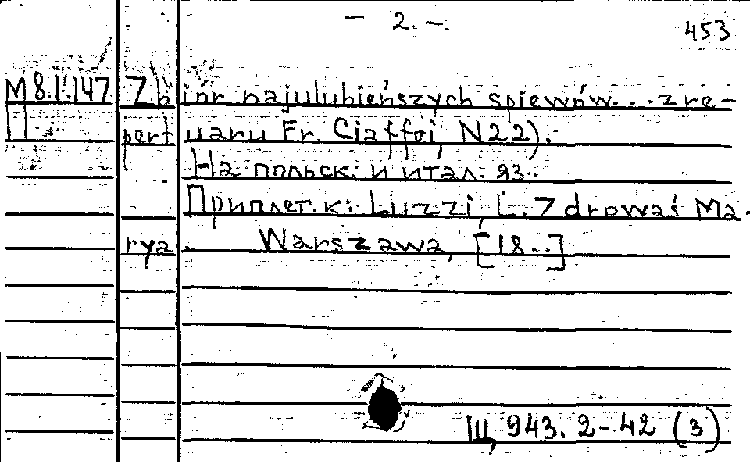 — 2. —
453
М 8.II.147 Zbiór najulubieńszych śpiewów... z re-
II pertuaru Fr. Ciaffei, N 22).
На польск. и итал. яз.
Приплет. к: Luzzi, L. Zdrowaś Ma-
rya. Warszawa, [18..]
Щ 943. 2-42 (3)